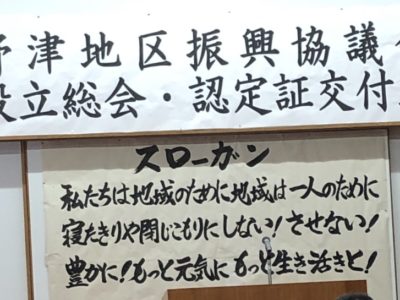 野津地区振興協議会
設立総会・認定証交付
スローガン
私たちは地域のために地域は一人のために
寝たきりや閉じこもりにしない！させない！
豊かに！もっと元気にもっと生き活きと！